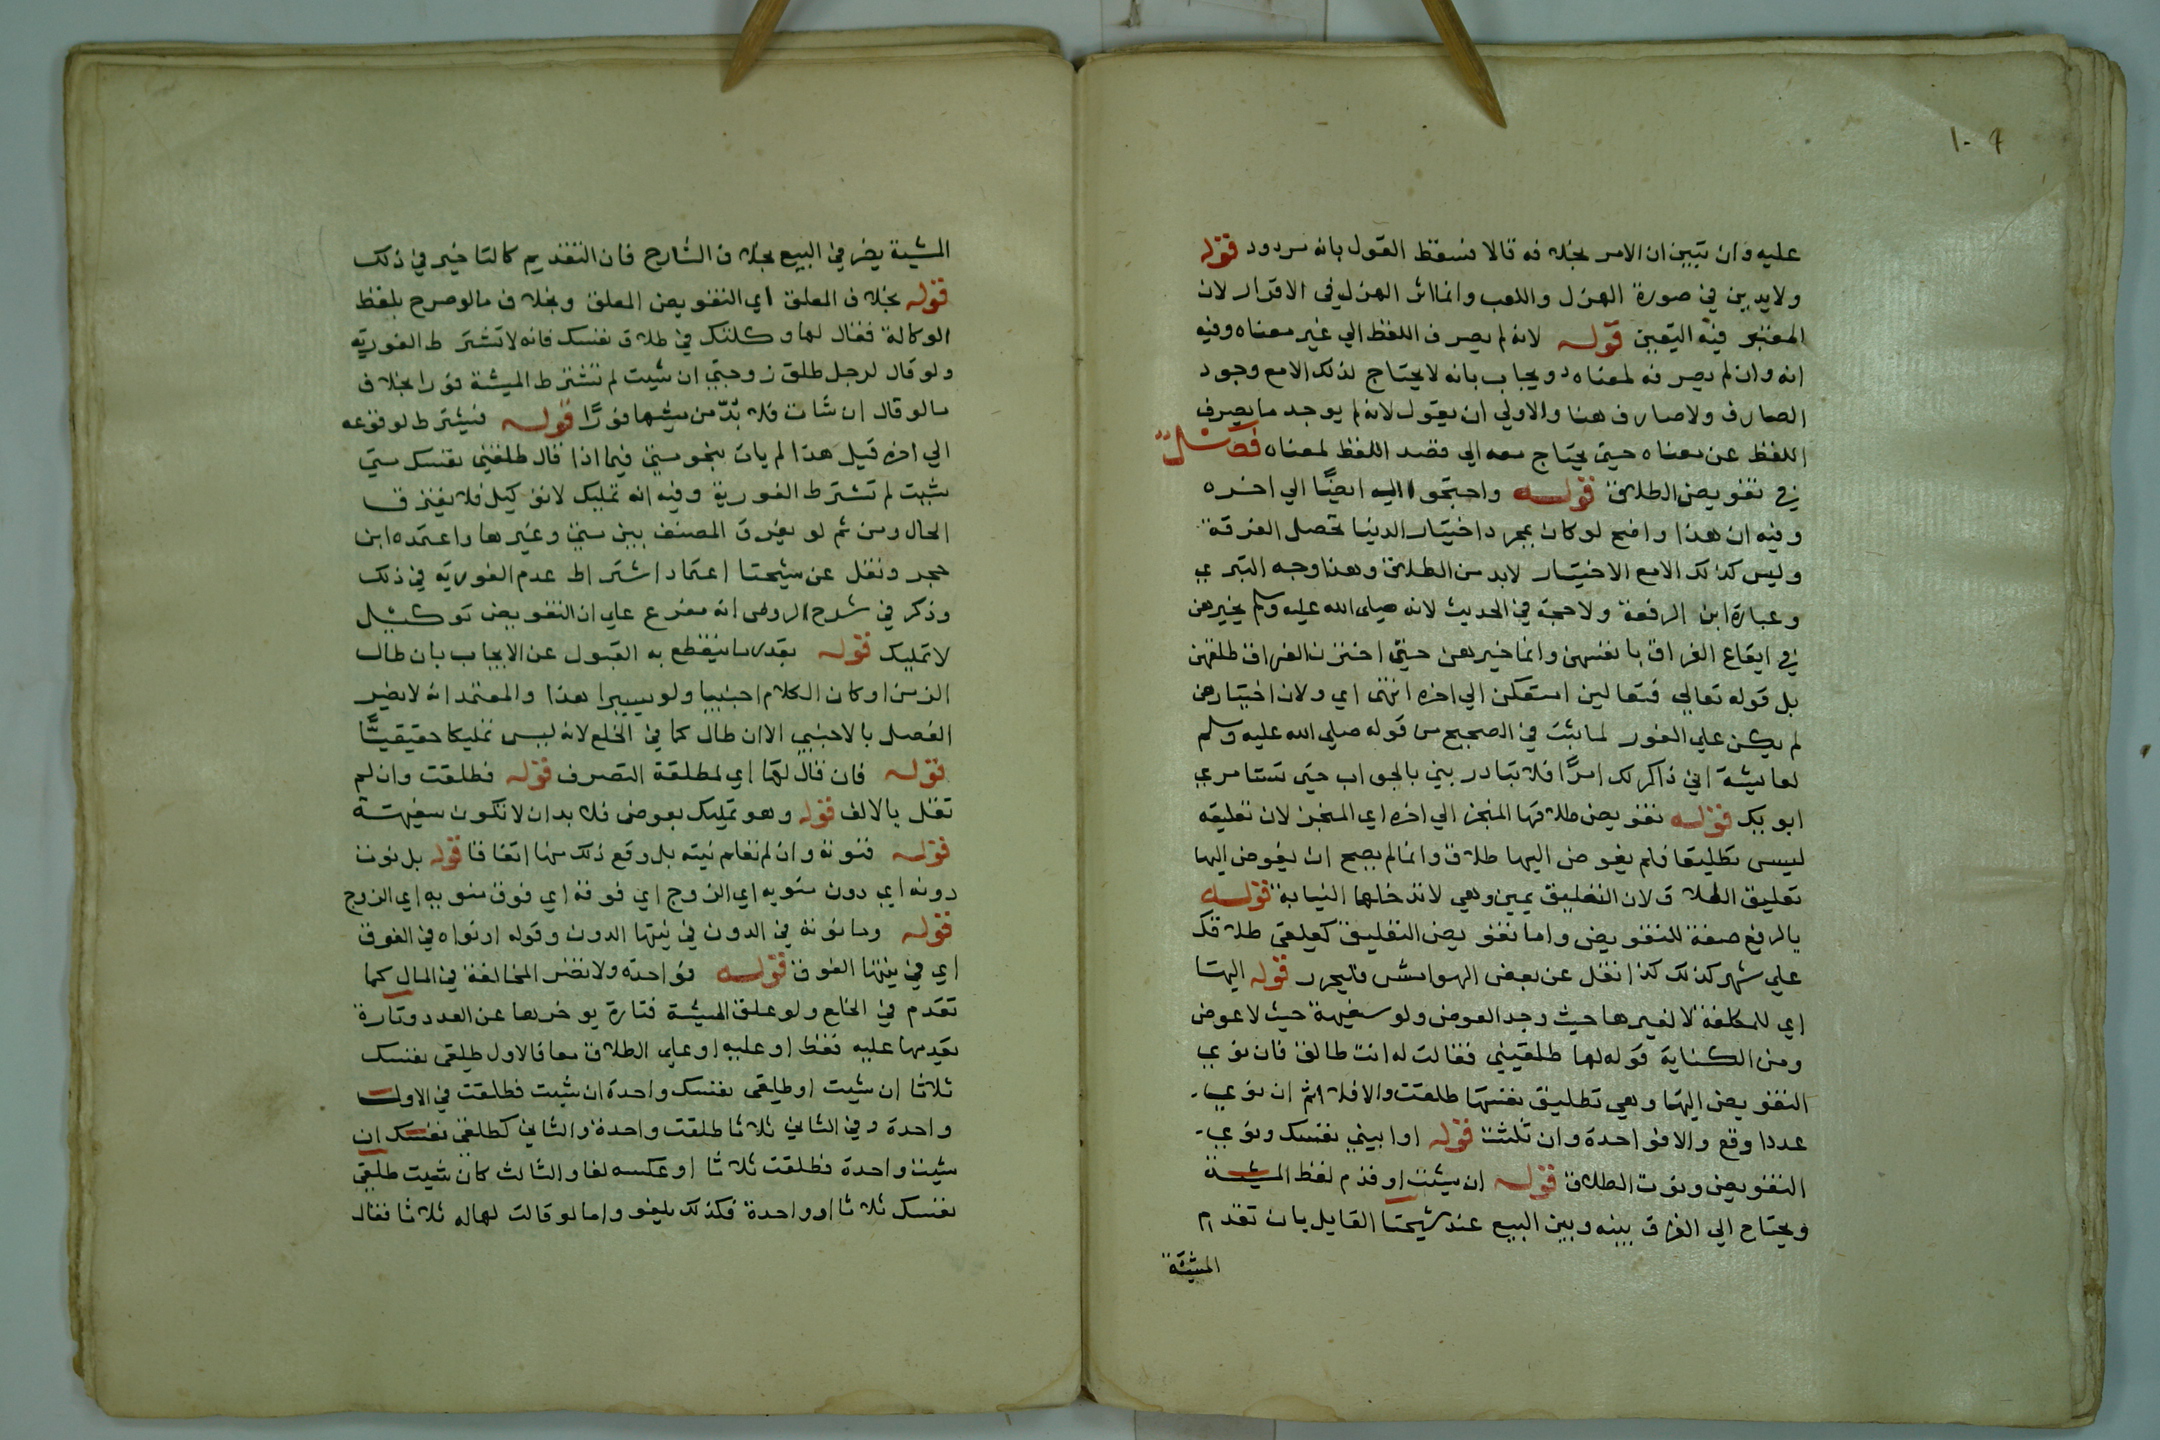 ١٠٩
عليه وان تبين ان الامر بخلافه قالا فسقط القول بانه مردود قوله
ولا يدين في صورة الهزل واللعب وانما اثر الهزل في الاقرار لان
المعتبر فيه اليقين قوله لانه لم يصرف اللفظ الي غير معناه وفيه
انه وان لم يصرفه لمعناه ويجاب بانه لا يحتاج لذلك الا مع وجود
الصارف ولا صارف هنا والاولي ان يقول لانه لم يوجد ما يصرف
اللفظ عن معناه حتي يحتاج معه الي قصد اللفظ لمعناه فصل
في تفويض الطلاق قوله واحتجوا اليه ايضًا الي اخره
وفيه ان هذا واضح لو كان بمجرد اختيار الدنيا تحصل الفرقة
وليس كذلك الا مع الاختيار لا بد من الطلاق وهذا وجه التبري
وعبارة ابن الرفعة ولا حجة في الحديث لانه صلى الله عليه وسلم لم يخيرهن
في ايقاع الفراق بانفسهن وانما خيرهن حتي اخترن الفراق طلقهن
بل قوله تعالي فتعالين امتعكن الي اخره انتهى اي ولان اختيارهن
لم يكن علي الفور لما ثبت في الصحيح من قوله صلي الله عليه وسلم
لعايشة اني ذاكر لك امرًا فلا تبادريني بالجواب حتي تستامري
ابويك قوله تفويض طلاقها المنجز الي اخره اي المنجز لان تعليقه
ليس تطليقا فلم يفوض اليها طلاق وانما لم يصح ان يفوض اليها
تعليق الطلاق لان التعليق يمين وهي لا تدخلها النيابة قوله
بالرفع صفة للتفويض واما تفويض التعليق كعلقي طلاقك
علي شهر كذلك كذا نقل عن بعض الهوامش فليحرر قوله اليها
اي للمكلفة لا لغيرها حيث وجد العوض ولو سفيهة حيث لا عوض
ومن الكناية قوله لها طلقيني فقالت له انت طالق فان نوي
التفويض اليها وهي تطليق نفسها طلقت والا فلا ثم ان نوي
عددا وقع والا فواحدة وان ثلثت قوله او ابيني نفسك ونوي
التفويض ونوت الطلاق قوله ان شيت او قدم لفظ المشية
ويحتاج الي الفرق بينه وبين البيع عند شيخنا القايل بان تقدم
المشية
المشية يضر في البيع بخلاف الشارح فان التقديم كالتاخير في ذلك
قوله بخلاف المعلق اي التفويض المعلق وبخلاف ما لو صرح بلفظ
الوكالة فقال لها وكلتك في طلاق نفسك فانه لا تشترط الفورية
ولو قال لرجل طلق زوجتي ان شيت لم تشترط المشية فورا بخلاف
ما لو قال ان شات فلا بدّ من مشيتها فورًا قوله فيشترط لوقوعه
الي اخره قيل هذا لم يات بنحو متي فيما اذا قال طلقي نفسك متي
شيت لم تشترط الفورية وفيه انه تمليك لا توكيل فلا يفترق
الحال ومن ثم لو يفرق المصنف بين متي وغيرها واعتمده ابن
حجر ونقل عن شيخنا اعتماد اشتراط عدم الفورية في ذلك
وذكر في شرح الروض انه مفرع علي ان التفويض توكيل
لا تمليك قوله بقدر ما ينقطع به القبول عن الايجاب بان طال
الزمن او كان الكلام اجنبيا ولو يسيرا هذا والمعتمد انه لا يضر
الفصل بالاجنبي الا ان طال كما في الخلع لانه ليس تمليكا حقيقيًّا
قوله فان قال لها اي لمطلقة التصرف قوله فطلقت وان لم
تقل بالالف قوله وهو تمليك بعوض فلا بد ان لا تكون سفيهة
قوله فنوته وان لم تعلم نيته بل وقع ذلك منها اتفاقا قوله بل نوت
دونه اي دون منويه اي الزوج اي فوقه اي فوق منويه اي الزوج
قوله وما نوته في الدون في نيتها الدون وقوله او نواه في الفوق
اي في نيتها الفوق قوله فواحدة ولا تضر المخالفة في المال كما
تقدم في الخلع ولو علق المشية فتارة يوخرها عن العدد وتارة
يقدمها عليه فقط او عليه او علي الطلاق معا فالاول طلقي نفسك
ثلاثا ان شيت او طلقي نفسك واحدة ان شيت فطلقت في الاول
واحدة وفي الثاني ثلاثا طلقت واحدة والثاني كطلقي نفسك ان
شيت واحدة فطلقت ثلاثا او عكسه لغا والثالث كان شيت طلقي
نفسك ثلاثا او واحدة فكذلك يلغو واما لو قالت لها له ثلاثا فقال